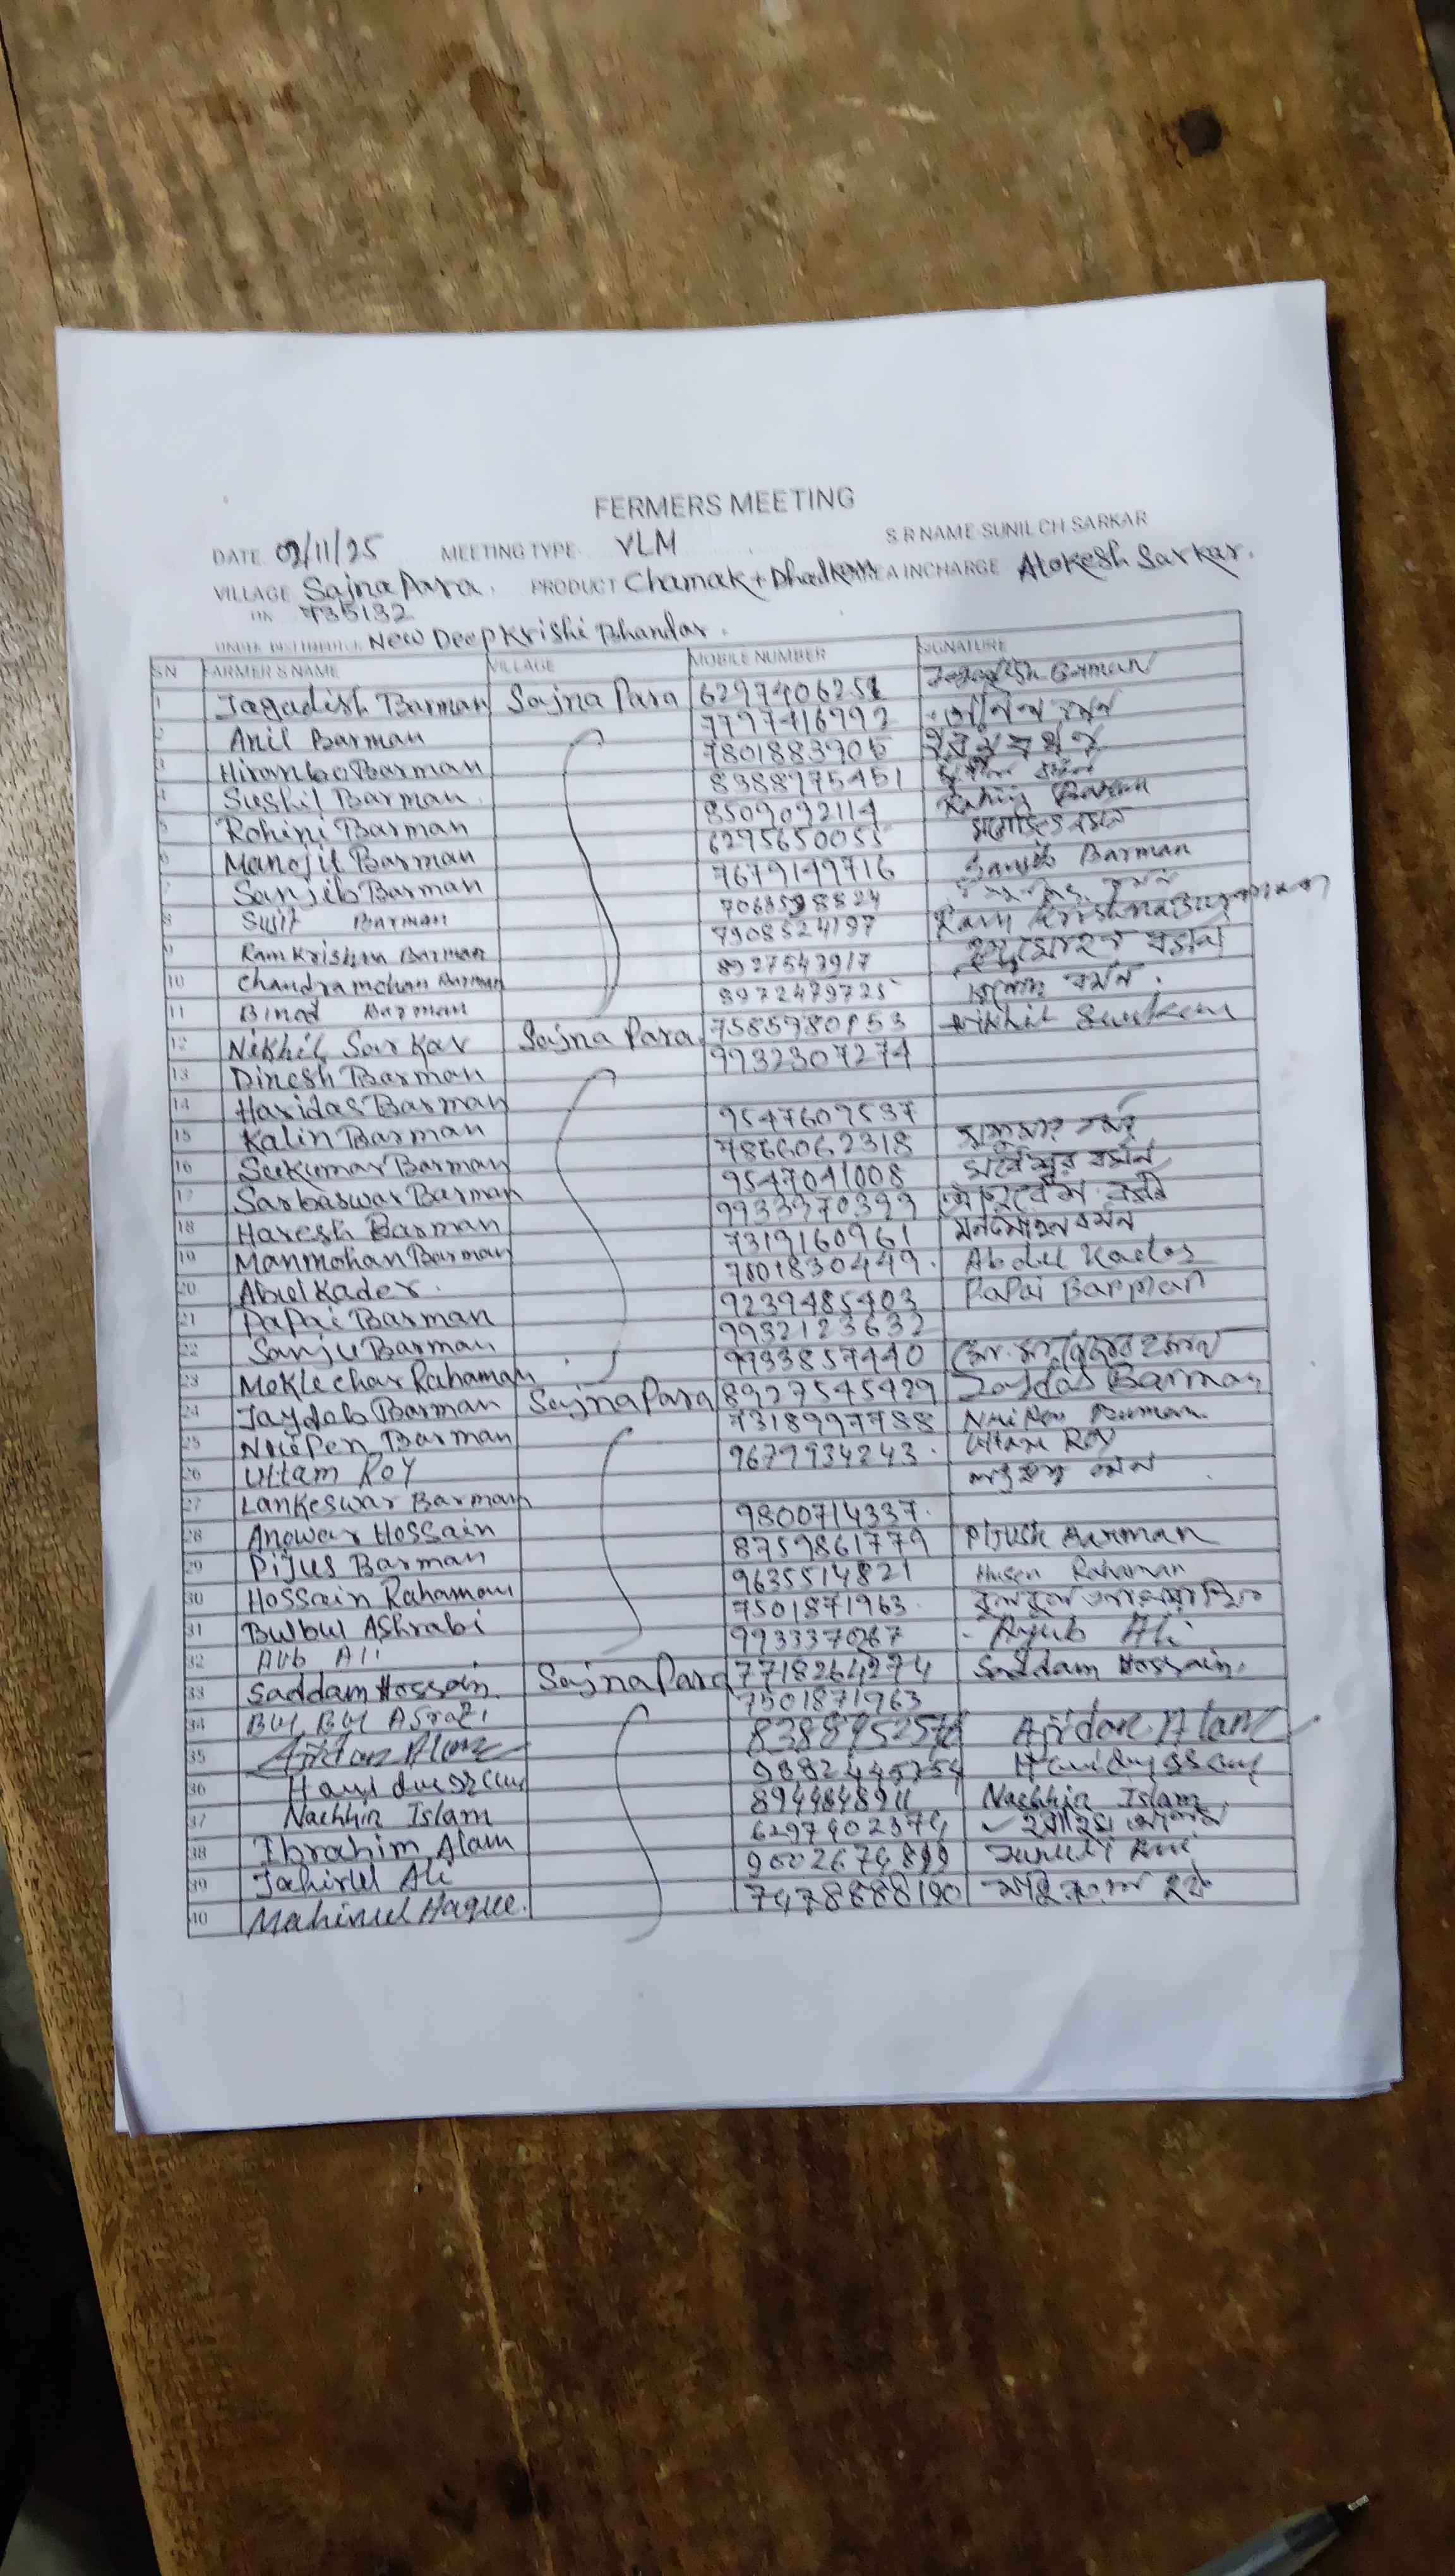 FERMERS MEETING
DATE 02/11/25 MEETING TYPE VLM S R NAME SUNIL CH SARKAR
VILLAGE Sajna Para. PRODUCT Chamak + Dhalkan AREA INCHARGE Alokesh Sarkar.
735132
New Deep Krishi Bhandar.
SN FARMER S NAME VILLAGE MOBILE NUMBER SIGNATURE
1 Jagadish Barman Sajna Para 6297406251 Jagadish Barman
2 Anil Barman 7797416992
3 Hirambo Barman 7801883905
4 Sushil Barman 8388975451
5 Rohini Barman 8509092114
6 Manojit Barman 6295650055
7 Sanjib Barman 7679149716 Sanjib Barman
8 Sujit Barman 7063598524
9 Ram Krishna Barman 7908524197 Ram Krishna
10 Chandramohan Barman 8927543917
11 Binod Barman 8972479725 বর্মন
12 Nikhil Sarkar Sajna Para 7585980853 Nikhil Sarkar
13 Dinesh Barman 9932307274
14 Haridas Barman
15 Kalin Barman 9547609537
16 Sukumar Barman 7866062318
17 Sarbaswar Barman 9547041008 সর্বেশ্বর বর্মন
18 Haresh Barman 9933970399
19 Manmohan Barman 7319160961 মনমোহন বর্মন
20 Abul Kader. 7601830449. Abdul Kader
21 Papai Barman 9239485403 Papai Barman
22 Sanju Barman 9932123632
23 Moklechar Rahaman 9933857440
24 Jaydeb Barman Sajna Para 8927545429 Joydeb Barman
25 Nripen Barman 7318997788 Nripen Burman
26 Uttam Roy 9679934243. Uttam Roy
27 Lankeswar Barman
28 Anowar Hossain 9800714337.
29 Pijus Barman 8759861779 Pijush Barman
30 Hossain Rahaman 9635514821 Husen Rahaman
31 Bulbul Ashrabi 7501871963.
32 Aub Ali 9933370267 Ayub Ali
33 Saddam Hossain. Sajna Para 7718264274 Saddam Hossain.
34 Bul Bul Asrabi 7501871963
35 Ajidar Alam Ajidar Alam
36 9882445754
37 Nachhir Islam 8944848911 Nachhir Islam
38 Ibrahim Alam 6297402374
39 Jahirul Ali 9002674899
40 Mahinul Haque. 7478888190